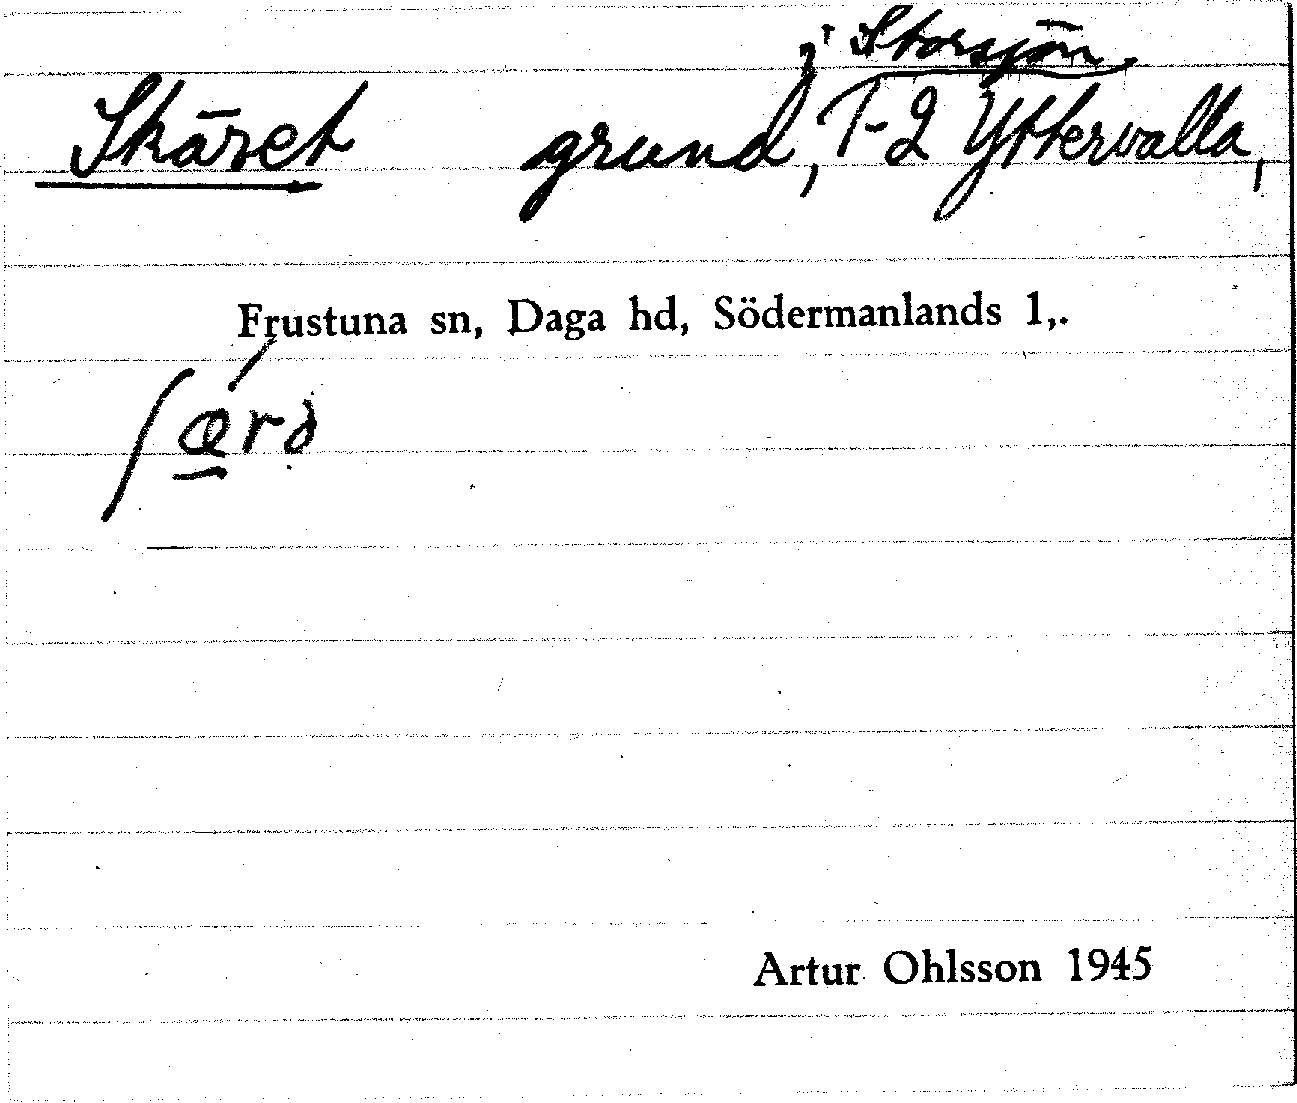 i Storsjön
Skäret grund, 1-2 Yttervalla,
Frustuna sn, Daga hd, Södermanlands l,.
Artur Ohlsson 1945